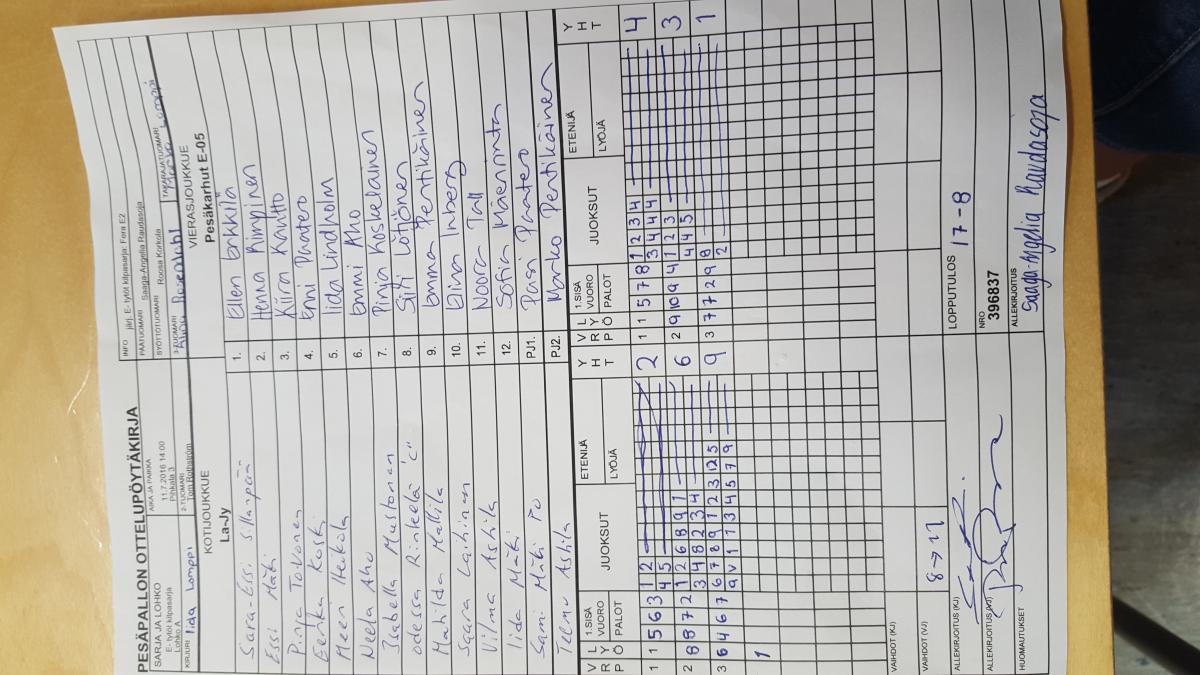 PESÄPALLON OTTELUPÖYTÄKIRJA
SARJA JA LOHKO
E- tytöt kilpasarja
Lohko A
AIKA JA PAIKKA
11.7.2016 14.00
Pihkala 3
INFO järj. E- tytöt kilpasarja: Fera E2
PÄÄTUOMARI Saaga-Angelia Raudasoja
SYÖTTÖTUOMARI Roosa Korkola
KIRJURI Iida Lamppi
2-TUOMARI
Tom Rothström
3-TUOMARI
TAKARAJATUOMARI
KOTIJOUKKUE
La-Jy
VIERASJOUKKUE
Pesäkarhut E-05
Sara-Essi Sillanpää 1. Ellen Erkkilä
Essi Mäki 2. Henna Rimpinen
Pinja Tokonen 3. Kiira Kautto
Eerika Koski 4. Enni Paatero
Meeri Ikekola 5. Iida Lindholm
Neela Aho 6. Emmi Aho
Isabella Mustonen 7. Pinja Koskelainen
Odessa Rinteelä "C" 8. Siiri Lötjönen
Mahilda Mallila 9. Emma Pentikäinen
Saara Laihinen 10. Elina Inberg
Vilma Ashila 11. Noora Tall
Iida Mäki 12. Sofia Mäenrinta
Sami Mäki PJ1. Pasi Paatero
Teemu Ashila PJ2. Marko Pentikäinen
V P L R Y Ö 1.SISÄ VUORO PALOT JUOKSUT ETENIJÄ LYÖJÄ Y H T V P L R Y Ö 1.SISÄ VUORO PALOT JUOKSUT ETENIJÄ LYÖJÄ Y H T
1 1 5 6 3 1 2 2 1 1 5 7 8 1 2 3 4 4
4 5 3 4 4 4
2 8 8 7 2 1 2 6 8 9 1 6 2 9 10 9 4 1 2 3 3
3 4 8 2 3 4 4 4 5
3 6 4 6 7 6 7 8 9 1 2 3 12 5 9 3 7 7 2 9 8 1
9 V 1 1 3 4 5 7 9 2
1
VAIHDOT (KJ)
VAIHDOT (VJ) 8 → 11
LOPPUTULOS 17-8
ALLEKIRJOITUS (KJ)
ALLEKIRJOITUS (VJ)
NRO
396837
HUOMAUTUKSET
ALLEKIRJOITUS
Saaga-Angelia Raudasoja